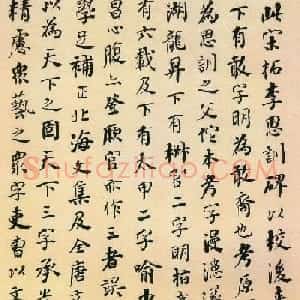 此宋拓李思訓碑以校後来
下有敢字明為敢裔也考原
為思訓之父佗本考字漫漶
湖龍昇下有二字明拍
有六載及下有人甲二字喻
昌心腹官亦作三者誤
學足補正北海文集及全唐文
以為天下之固天下三字承
精慮衆藝之眾字吏曹以文
Shufaziliao.com